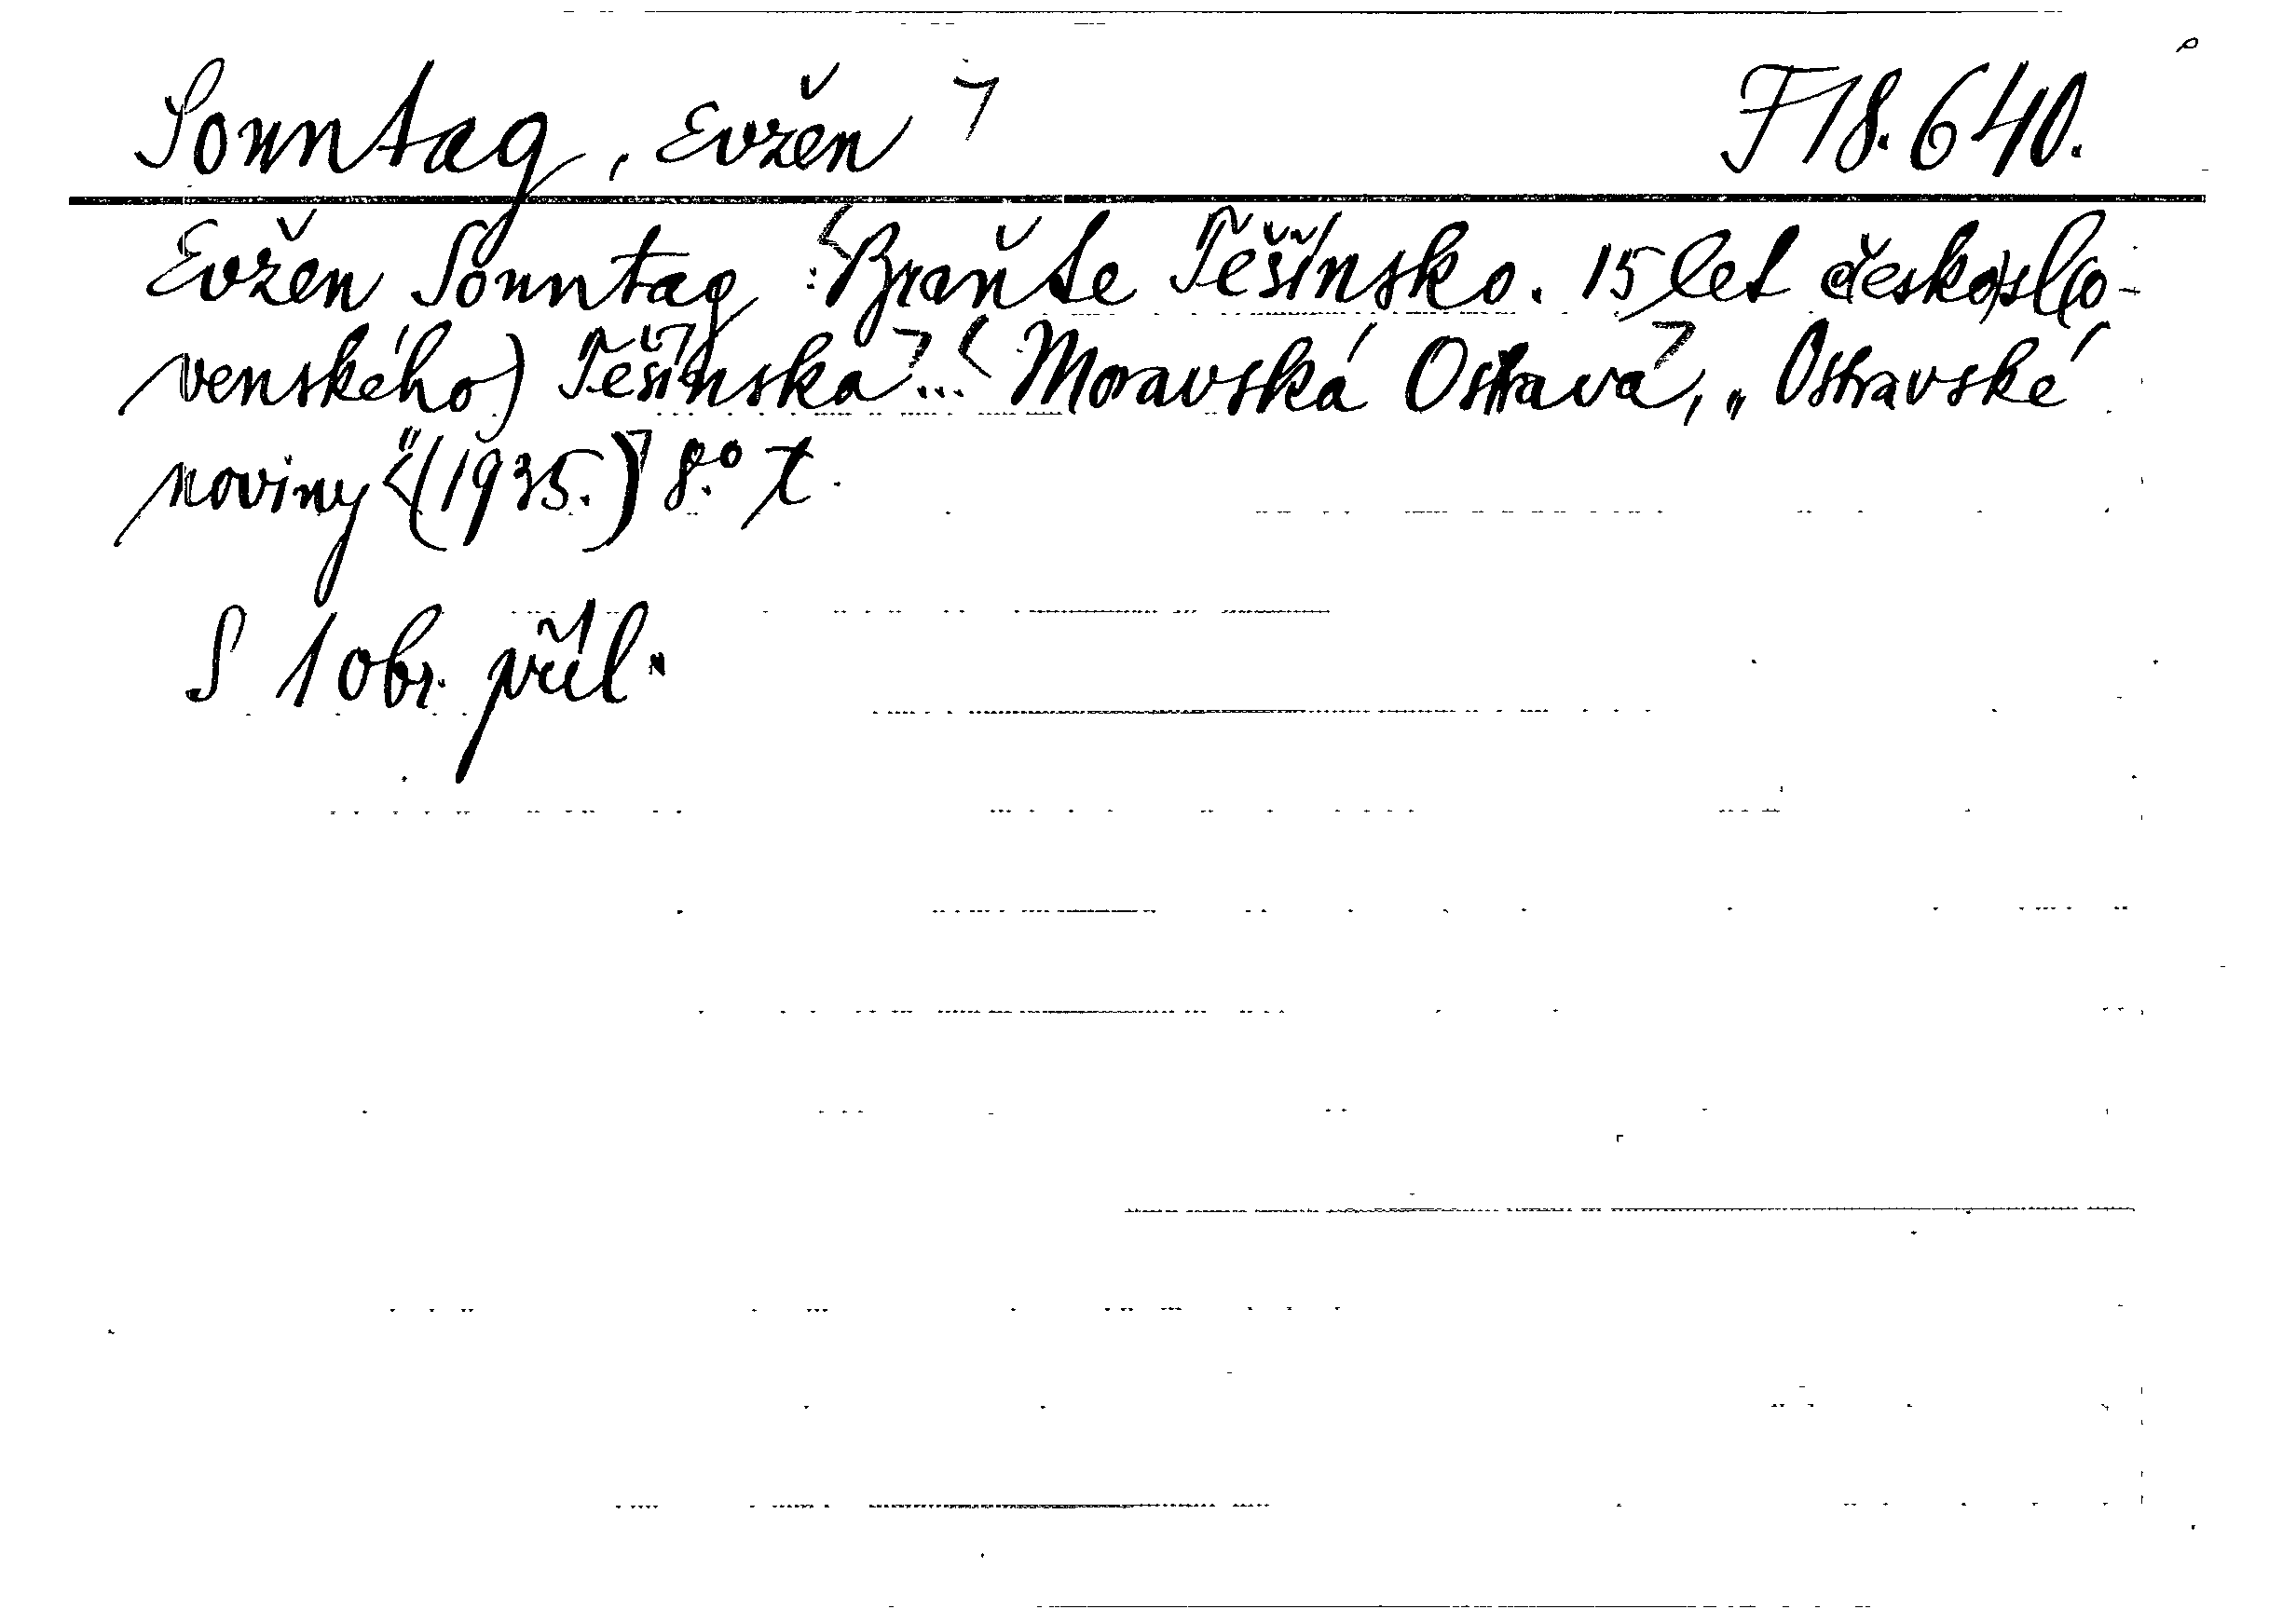 Sonntag, Evžen F 18.640.
Evžen Sonntag : Braňte Těšínsko. 15 let česko)sl(o-
venského) Těšínska... Moravská Ostrava, „Ostravské
noviny" (1935.) 8.°
S 1 obr. příl.